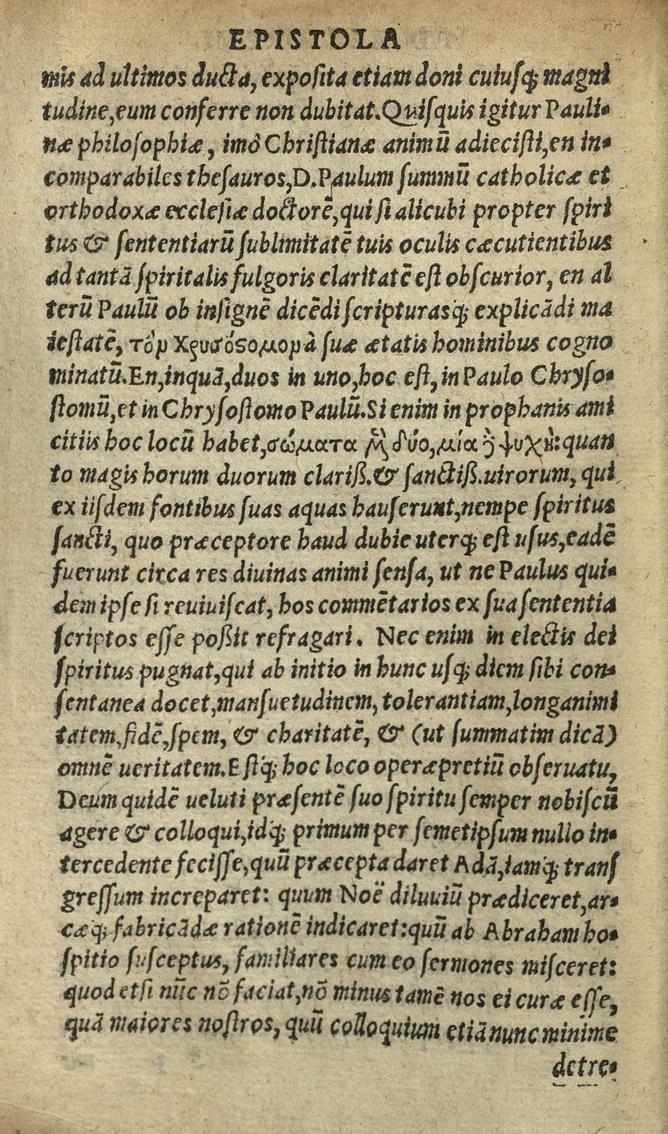 EPISTOLA
mis ad ultimos ducta, exposita etiam doni cuiusq; magni
tudine, eum conferre non dubitat. Quisquis igitur Pauli-
næ philosophiæ, imò Christianæ animũ adiecisti, en in-
comparabiles thesauros, D. Paulum summũ catholicæ et
orthodoxæ ecclesiæ doctorẽ, qui si alicubi propter spiri
tus & sententiarũ sublimitatẽ tuis oculis cæcutientibus
ad tantã spiritalis fulgoris claritatẽ est obscurior, en al
terũ Paulũ ob insignẽ dicẽdi scripturasq; explicãdi ma
iestatẽ, τὸν Χρυσόστομον à suæ ætatis hominibus cogno
minatũ. En, inquã, duos in uno, hoc est, in Paulo Chryso-
stomũ, et in Chrysostomo Paulũ. Si enim in prophanis ami
citiis hoc locũ habet, σώματα μὲν δύο, μία δὲ ψυχὴ: quan
to magis horum duorum clariß. & sanctiß. uirorum, qui
ex iisdem fontibus suas aquas hauserunt, nempe spiritus
sancti, quo præceptore haud dubie uterq; est usus, eadẽ
fuerunt circa res diuinas animi sensa, ut ne Paulus qui-
dem ipse si reuiuiscat, hos commẽtarios ex sua sententia
scriptos esse poßit refragari. Nec enim in electis dei
spiritus pugnat, qui ab initio in hunc usq; diem sibi con-
sentanea docet, mansuetudinem, tolerantiam, longanimi
tatem, fidẽ, spem, & charitatẽ, & (ut summatim dicã)
omnẽ ueritatem. Estq; hoc loco operæpretiũ obseruatu,
Deum quidẽ ueluti præsentẽ suo spiritu semper nobiscũ
agere & colloqui, idq; primum per semetipsum nullo in-
tercedente fecisse, quũ præcepta daret Adã, iamq; trans
gressum increparet: quum Noë diluuiũ prædiceret, ar-
cæq; fabricãdæ rationẽ indicaret: quũ ab Abraham ho-
spitio susceptus, familiares cum eo sermones misceret:
quod etsi nũc nõ faciat, nõ minus tamẽ nos ei curæ esse,
quã maiores nostros, quũ colloquium etiã nunc minime
detre-